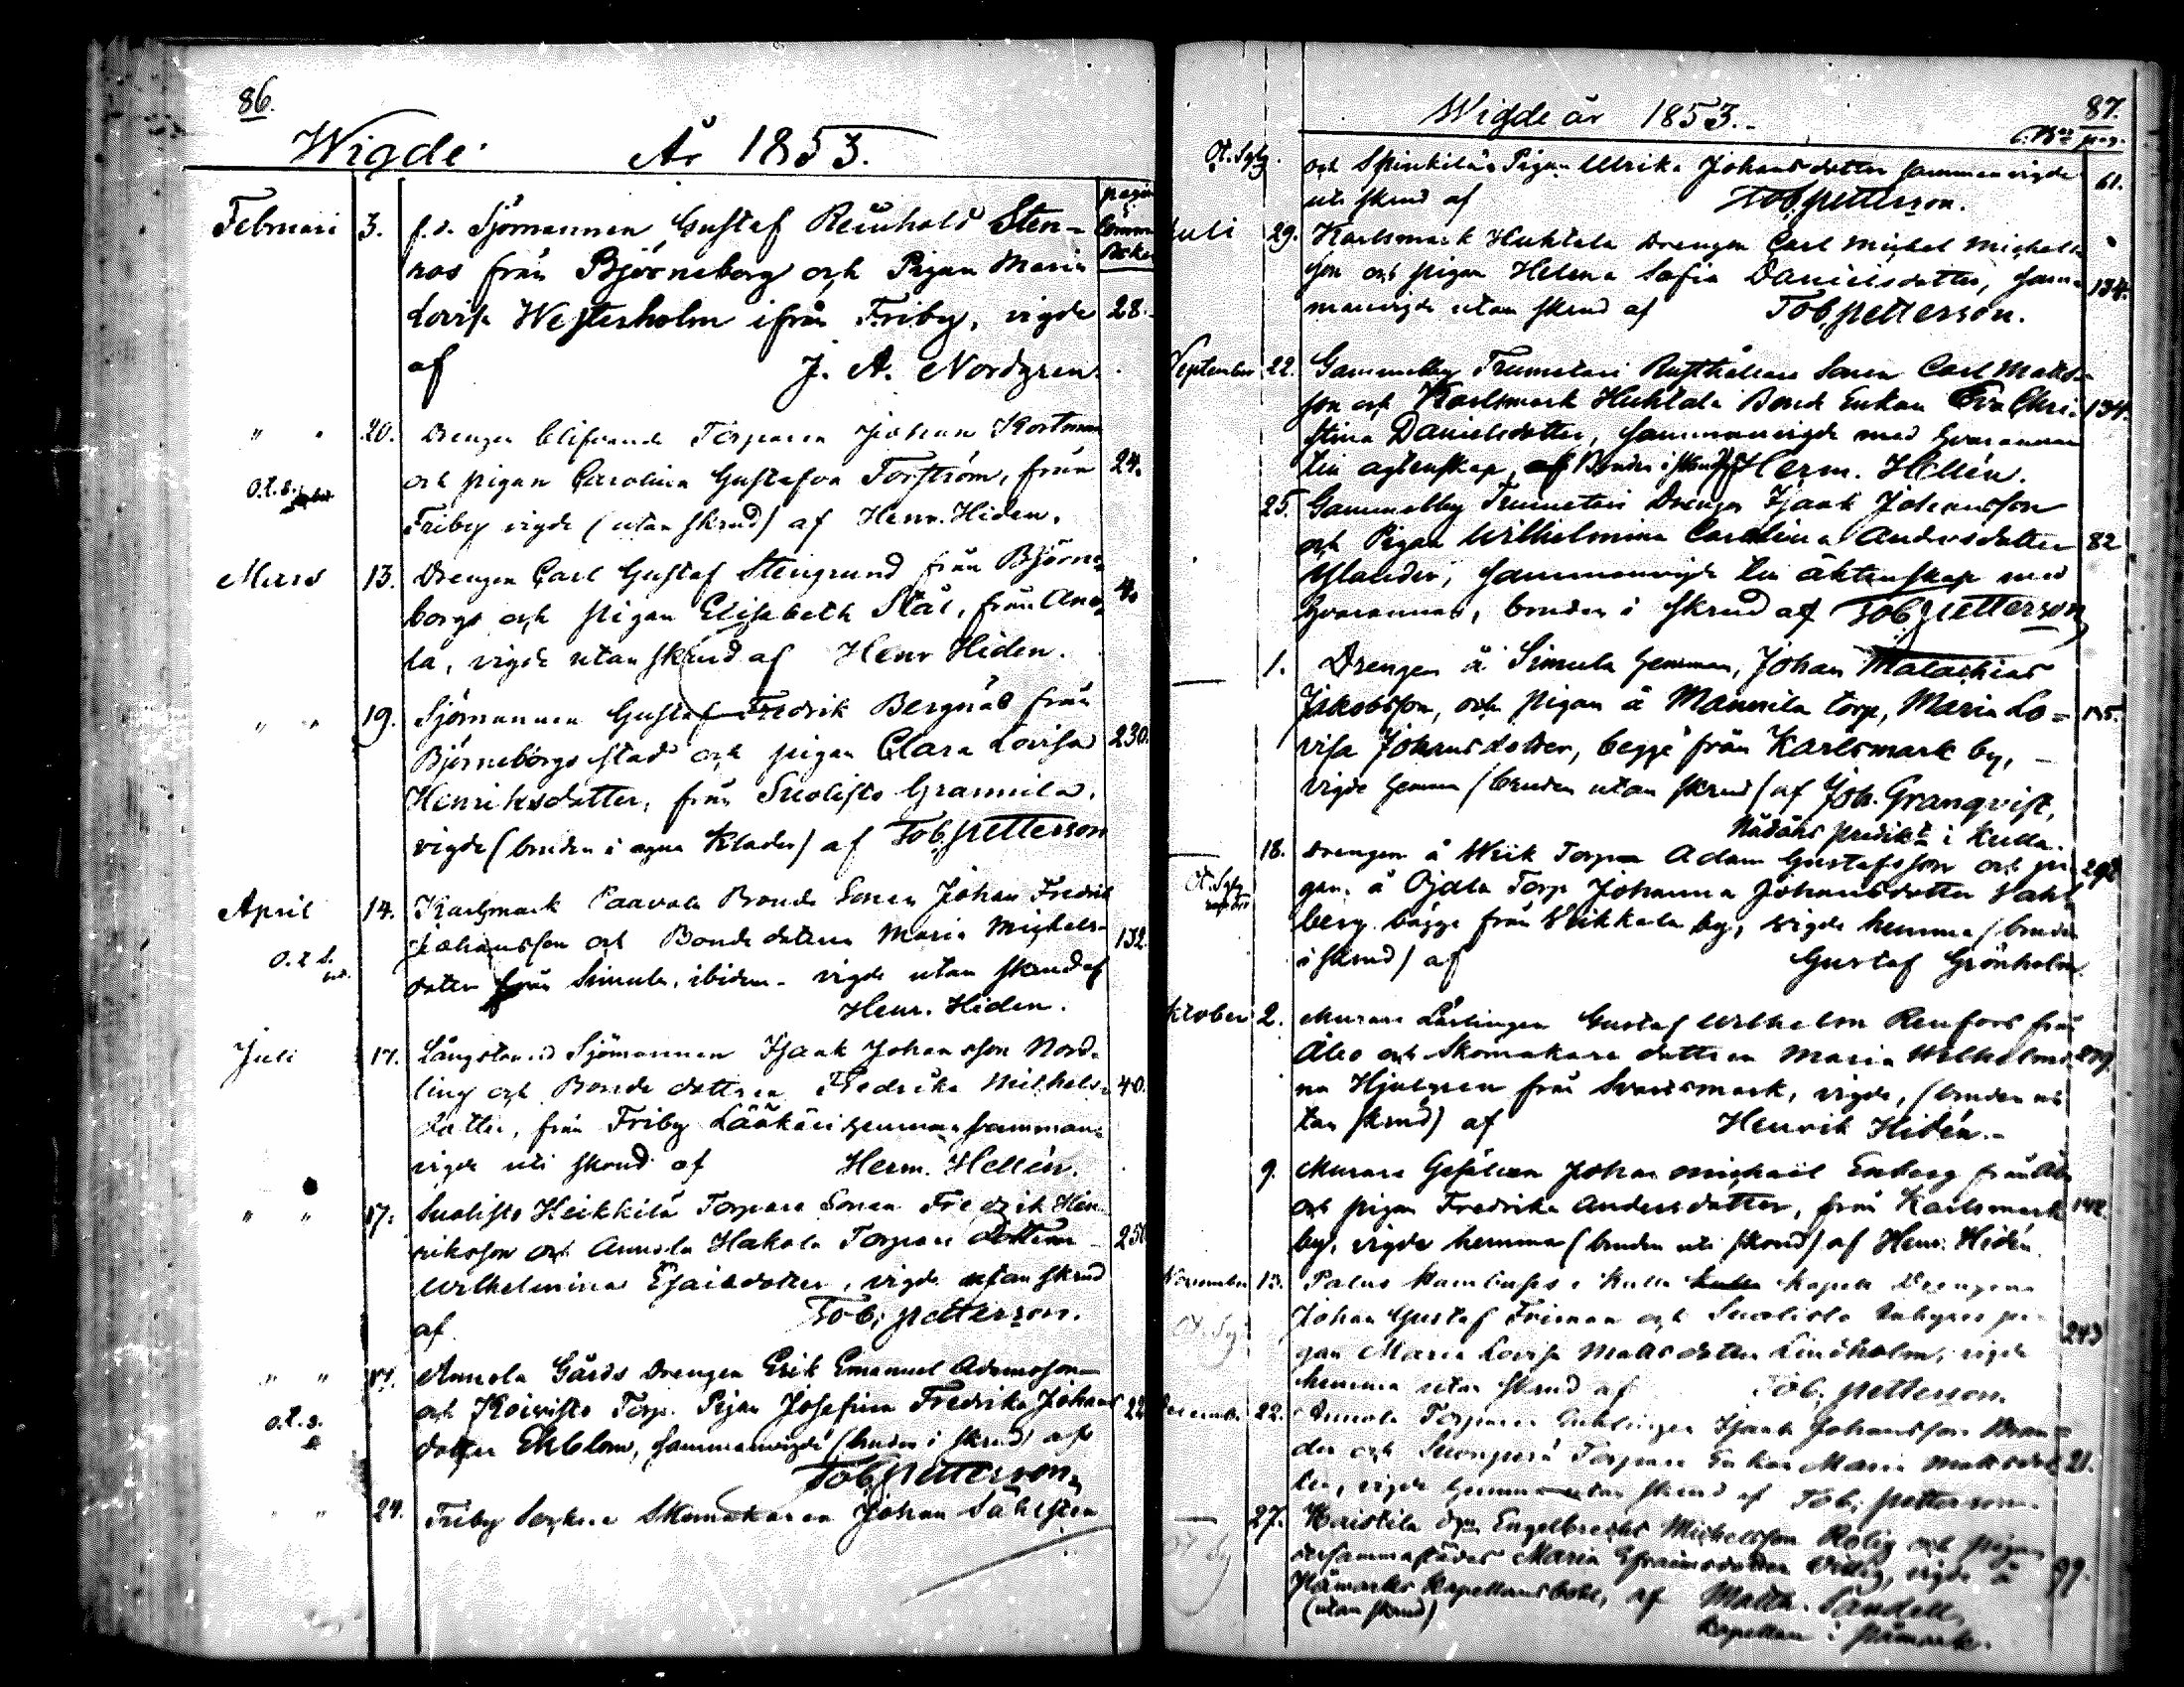 86.
Wigde År 1853.
pagina i Comm. Boken
Februari 3. f.d. Sjömannen Gustaf Reinhold Sten-
ros från Björneborg och Pigan Maria
Lovisa Westerholm ifrån Friby, vigde 28.
af J. A. Nordgren.
" " 20. Drengen blifvande Torparen Johan Kortman
och pigan Carolina Gustafva Torström, från 24.
O.t.s.
Friby vigde (utan skrud) af Henr. Hiden.
Mars 13. Drengen Carl Gustaf Stengrund från Björne-
borgs och pigan Elisabeth Stål, från Ano-
la, vigde utan skrud af Henr Hiden.
" " 19. Sjömannen Gustaf Fredrik Bergnäs från
Björneborgs stad och pigan Clara Lovisa 230.
Henriksdotter, från Suolisto Grannila,
vigde (bruden i egna kläder) af Tob. Petterson
April 14. Karlsmark Paavola Bonde Sonen Johan Fredrik
Johansson och Bonde dottren Maria Michels- 132
O.t.S.
dotter från Simula, ibidem. vigde utan skrud af
Henr. Hiden.
Juli 17. Långstrand Sjömannen Isaak Johansson Nord-
ling och Bonde dottren Fredrika Michels- 40.
dotter, från Friby Lääkäri hemman samman-
vigde uti skrud af Herm. Hellén.
" " 17. Suolisto Heikkilä Torpare Sonen Fredrik Hen-
riksson och Annola Hakola Torpare dottren 250
Wilhelmina Esaiedotter, vigde utan skrud
af Tob. Petterson.
" " 17. Annola Gårds Drengen Erik Emanuel Adamsson
och Koivisto Torp. Pigan Josefina Fredrika Johans 22
o.t.s.
dotter Ekblom, sammanvigde (bruden i skrud) af
Tob. Petterson.
" 24. Friby Socken Skomakaren Johan Sahlsten
87.
Wigde år 1853.-
C.Bns pag.
Ot. Sgly.
och Spinkilä Pigan Ulrika Johansdotter sammanvigde 61.
uti skrud af Tob. Petterson.
Juli 29. Karlsmark Huhtala Drengen Carl Michel Michels-
son och pigan Helena Sofia Danielsdotter, sam- 134.
manvigde utan skrud af Tob. Petterson.
September 22. Gammelby Trumetari Rusthållare Sonen Carl Matts-
son och Karlsmark Huhtala Bonde Enkan Eva Chri- 134.
stina Danielsdotter, sammanvigde med hvarannan
till ägtenskap, Bruden i skrud af Herm. Hellén.
25. Gammelby Trumetari Drengen Isaak Johansson
och Pigan Wilhelmina Carolina Andersdotter 82
Ylander, sammanvigde till äktenskap med
hvarannan, bruden i skrud af Tob. Petterson
1. Drengen å Simula hemman, Johan Malachias
Jakobsson, och pigan å Mannila torp, Maria Lo-
visa Johansdotter, begge från Karlsmark by,
vigde hemma (bruden utan skrud) af Joh. Granqvist,
Nådårs predikt i Kulla.
18. Drengen å Wiik Torp Adam Gustafsson och pi- 292
Ot. Sgly
gan å Ojala Torp Johanna Johansdotter Vahl
berg. bägge från Wiikkala by, vigde hemma (bruden
i skrud) af Gustaf Grönholm.
Oktober 2. Murare Lärlingen Gustaf Wilhelm Renfors från
Åbo och Skomakare dottren Maria Wilhelmi- 279
na Hjulgren från Svartsmark, vigde, (bruden u-
tan skrud) af Henrik Hidén.-
9. Murare Gesällen Johan Michaël Enberg från Åbo
och pigan Fredrika Andersdotter, från Karlsmark 142.
by, vigde hemma (bruden uti skrud) af Henr. Hidén
November 13. Palus i Kulla Kapell Drengen
Ot. Sg
Johan Gustaf Friman och Suolisto pi- 243
gan Maria Lovisa Mattsdotter Lindholm, vigde
hemma utan skrud af Tob. Petterson.
December 22. Annola Torpare Enklingen Isaak Johansson Bran-
der och Torpare Enkan Maria Mattsdot- 21.
ter, vigde hemma utan skrud af Tob. Petterson.
27. Haistila Engelbrecht Michelsson Rolig och pigan
dersammastädes Maria Efraimsdotter Villig, vigde å 99.
Påmarks Kapellansbohl, af Matth. Sandell,
(utan skrud) Kapellan i Påmark.